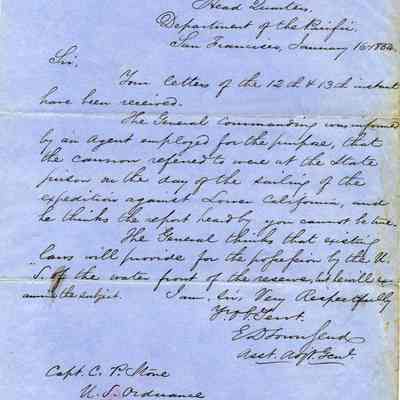 Head Quarters,
Department of the Pacific.
San Francisco, January 16 1854.
Sir.
Your letters of the 12th & 13th instant
have been received.
The General Commanding was informed
by an Agent employed for the purpose, that
the cannon referred to were at the State
prison on the day of the sailing of the
expedition against Lower California, and
he thinks the report made by you cannot be true.
The General thinks that existing
laws will provide for the possession by the U.
S. of the water front of the reserve, but he will ex-
amine the subject. I am, Sir, Very Respectfully
Yr. Ob. Servt.
E D Townsend
Asst. Adjt. Genl.
Capt. C. P. Stone
U. S. Ordnance